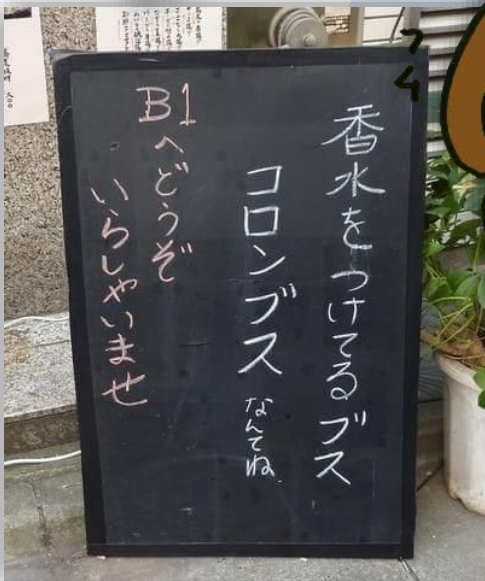 香水をつけてるブス
コロンブス なんてね
B1へどうぞ
いらしゃいませ
フム